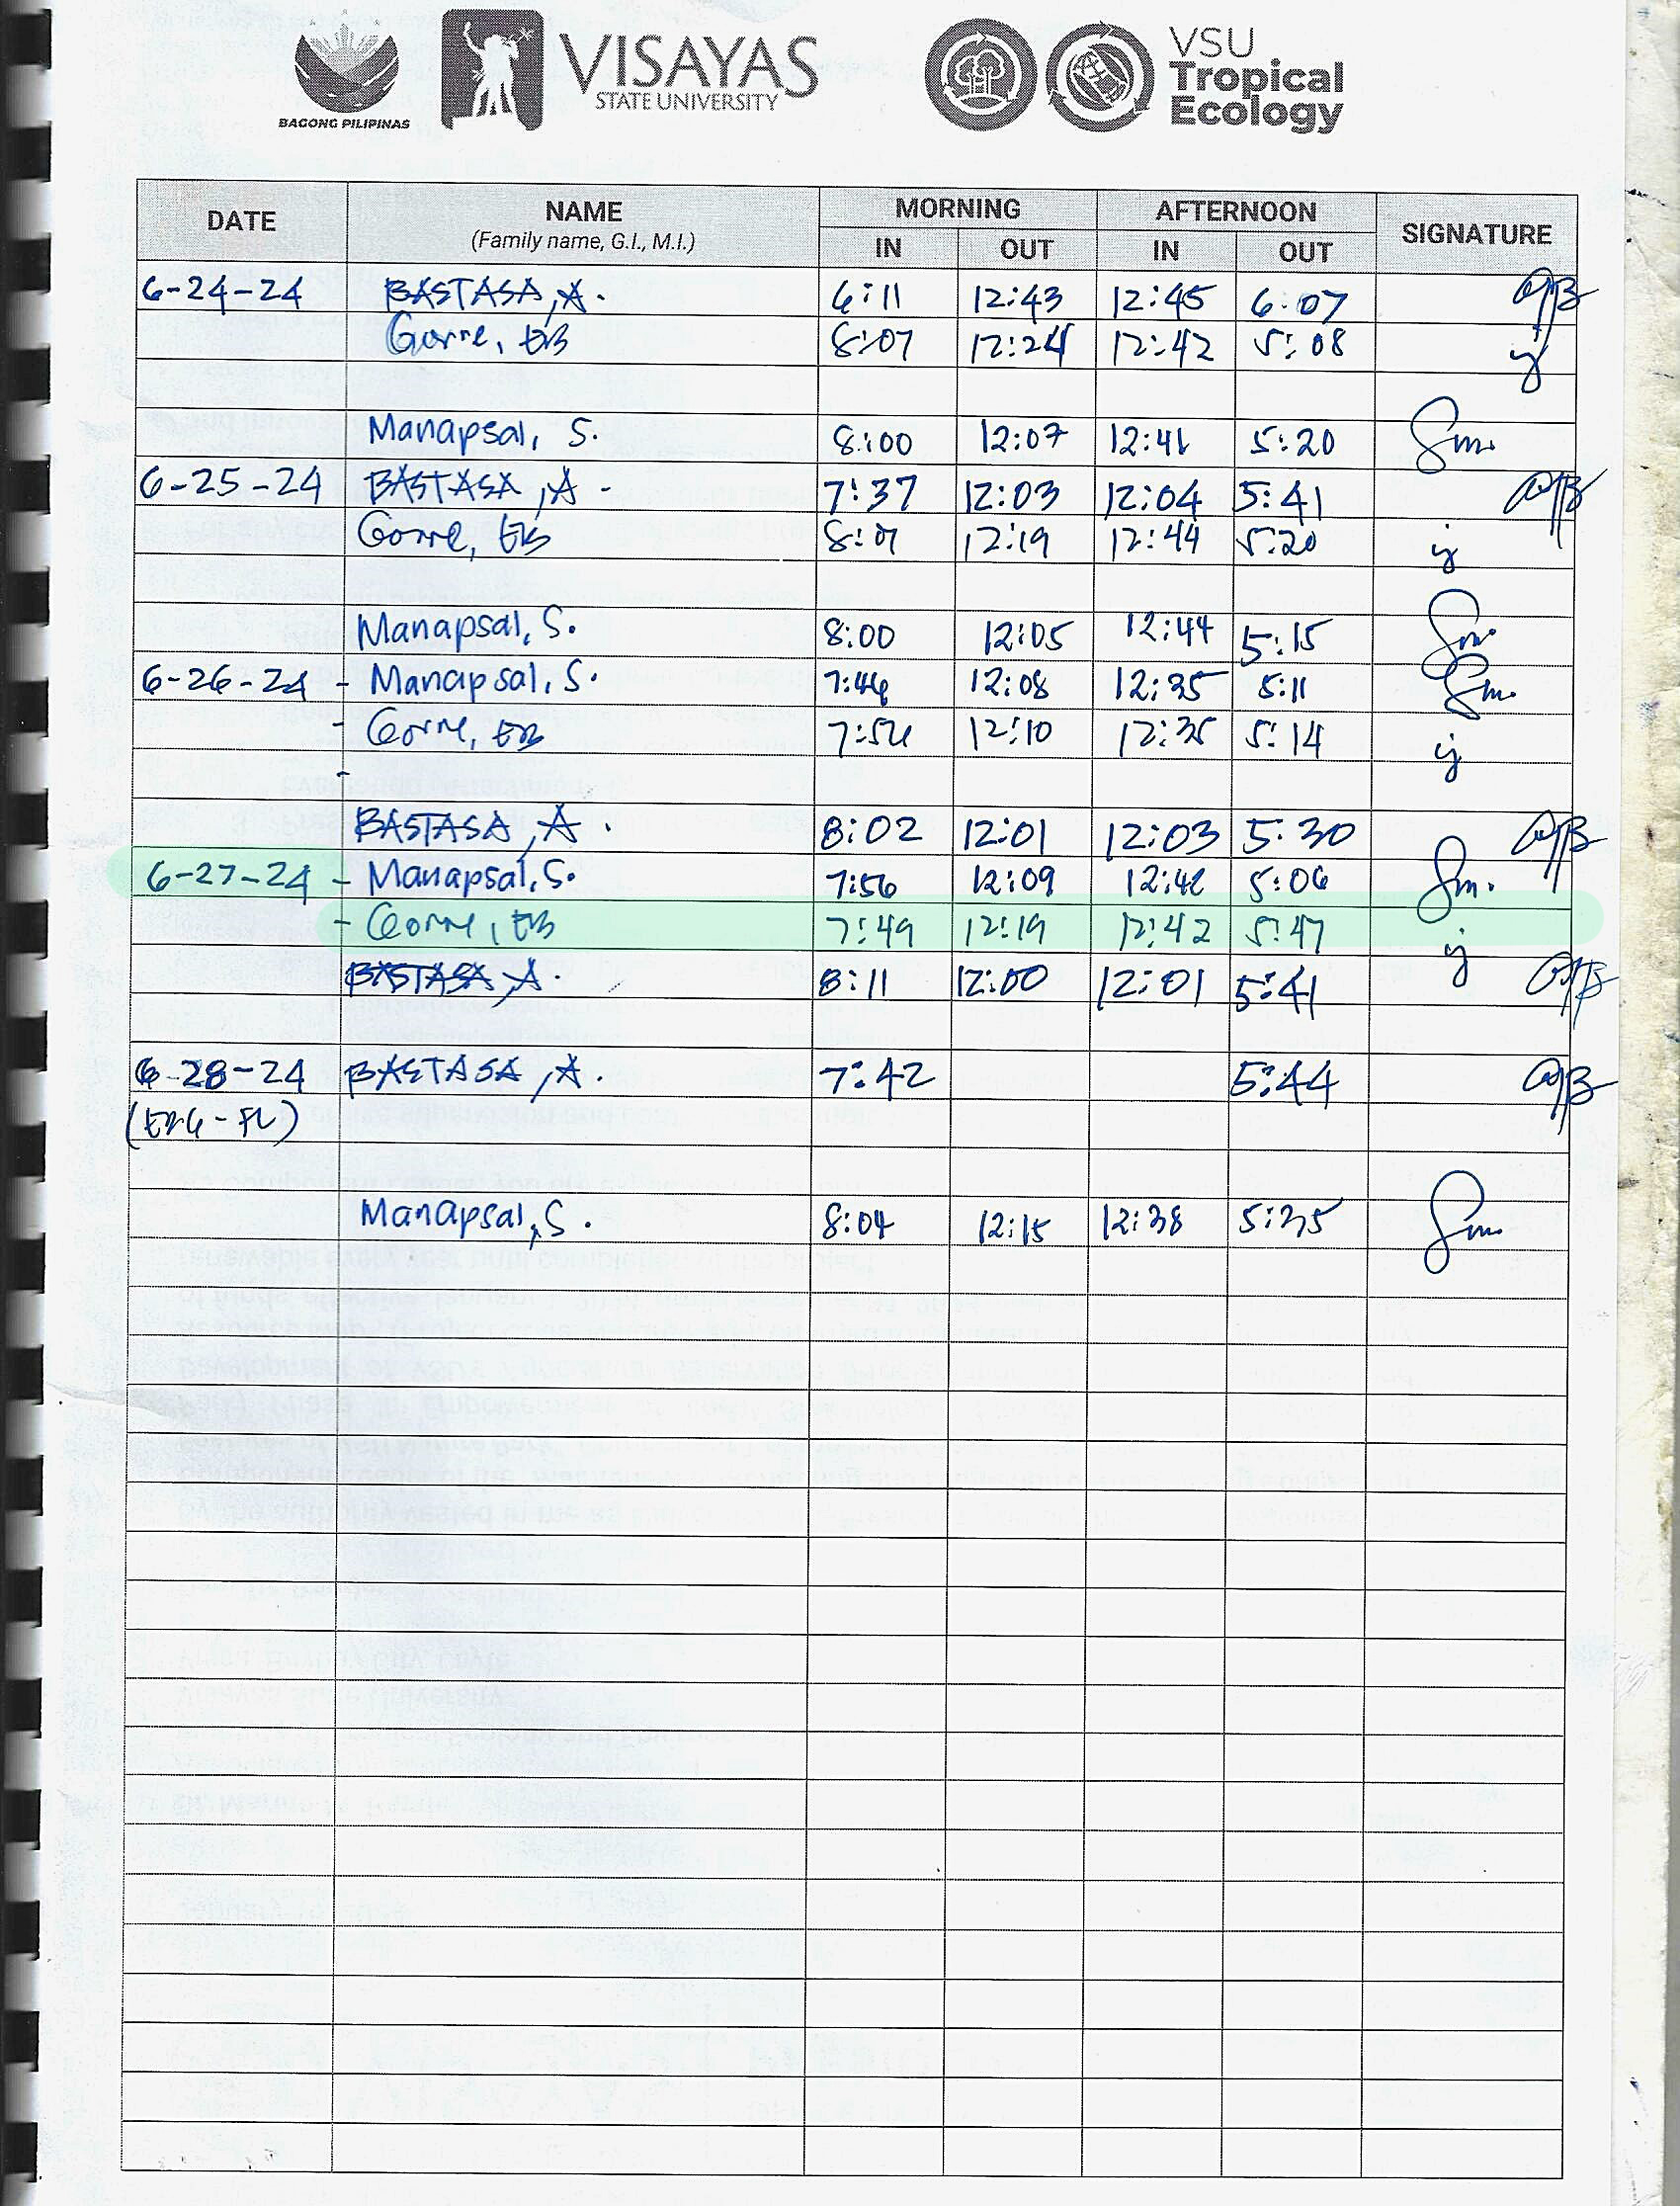 BAGONG PILIPINAS
VISAYAS
STATE UNIVERSITY
VSU
Tropical
Ecology
DATE NAME (Family name, G.I., M.I.) MORNING AFTERNOON SIGNATURE
IN OUT IN OUT
6-24-24 BASTASA, A. 6:11 12:43 12:45 6:07
Gorre, EB 8:07 12:24 12:42 5:08
Manapsal, S. 8:00 12:07 12:41 5:20 Sm.
6-25-24 BASTASA, A- 7:37 12:03 12:04 5:41
Gorre, EB 12:19 12:44 5:20
Manapsal, S. 8:00 12:05 12:44 5:15 Sm.
6-26-24 - Manapsal, S. 7:46 12:08 12:35 5:11 Sm.
- Gorre, EB 7:54 12:10 12:35 5:14
-
BASTASA, A. 8:02 12:01 12:03 5:30
6-27-24 - Manapsal, S. 7:56 12:09 12:42 5:06 Sm.
- Gorre, EB 7:49 12:19 12:42 5:47
BASTASA, A. 8:11 12:00 12:01 5:41
6-28-24 BASTASA, A. 7:42 5:44
Manapsal, S. 8:04 12:15 12:38 5:35 Sm